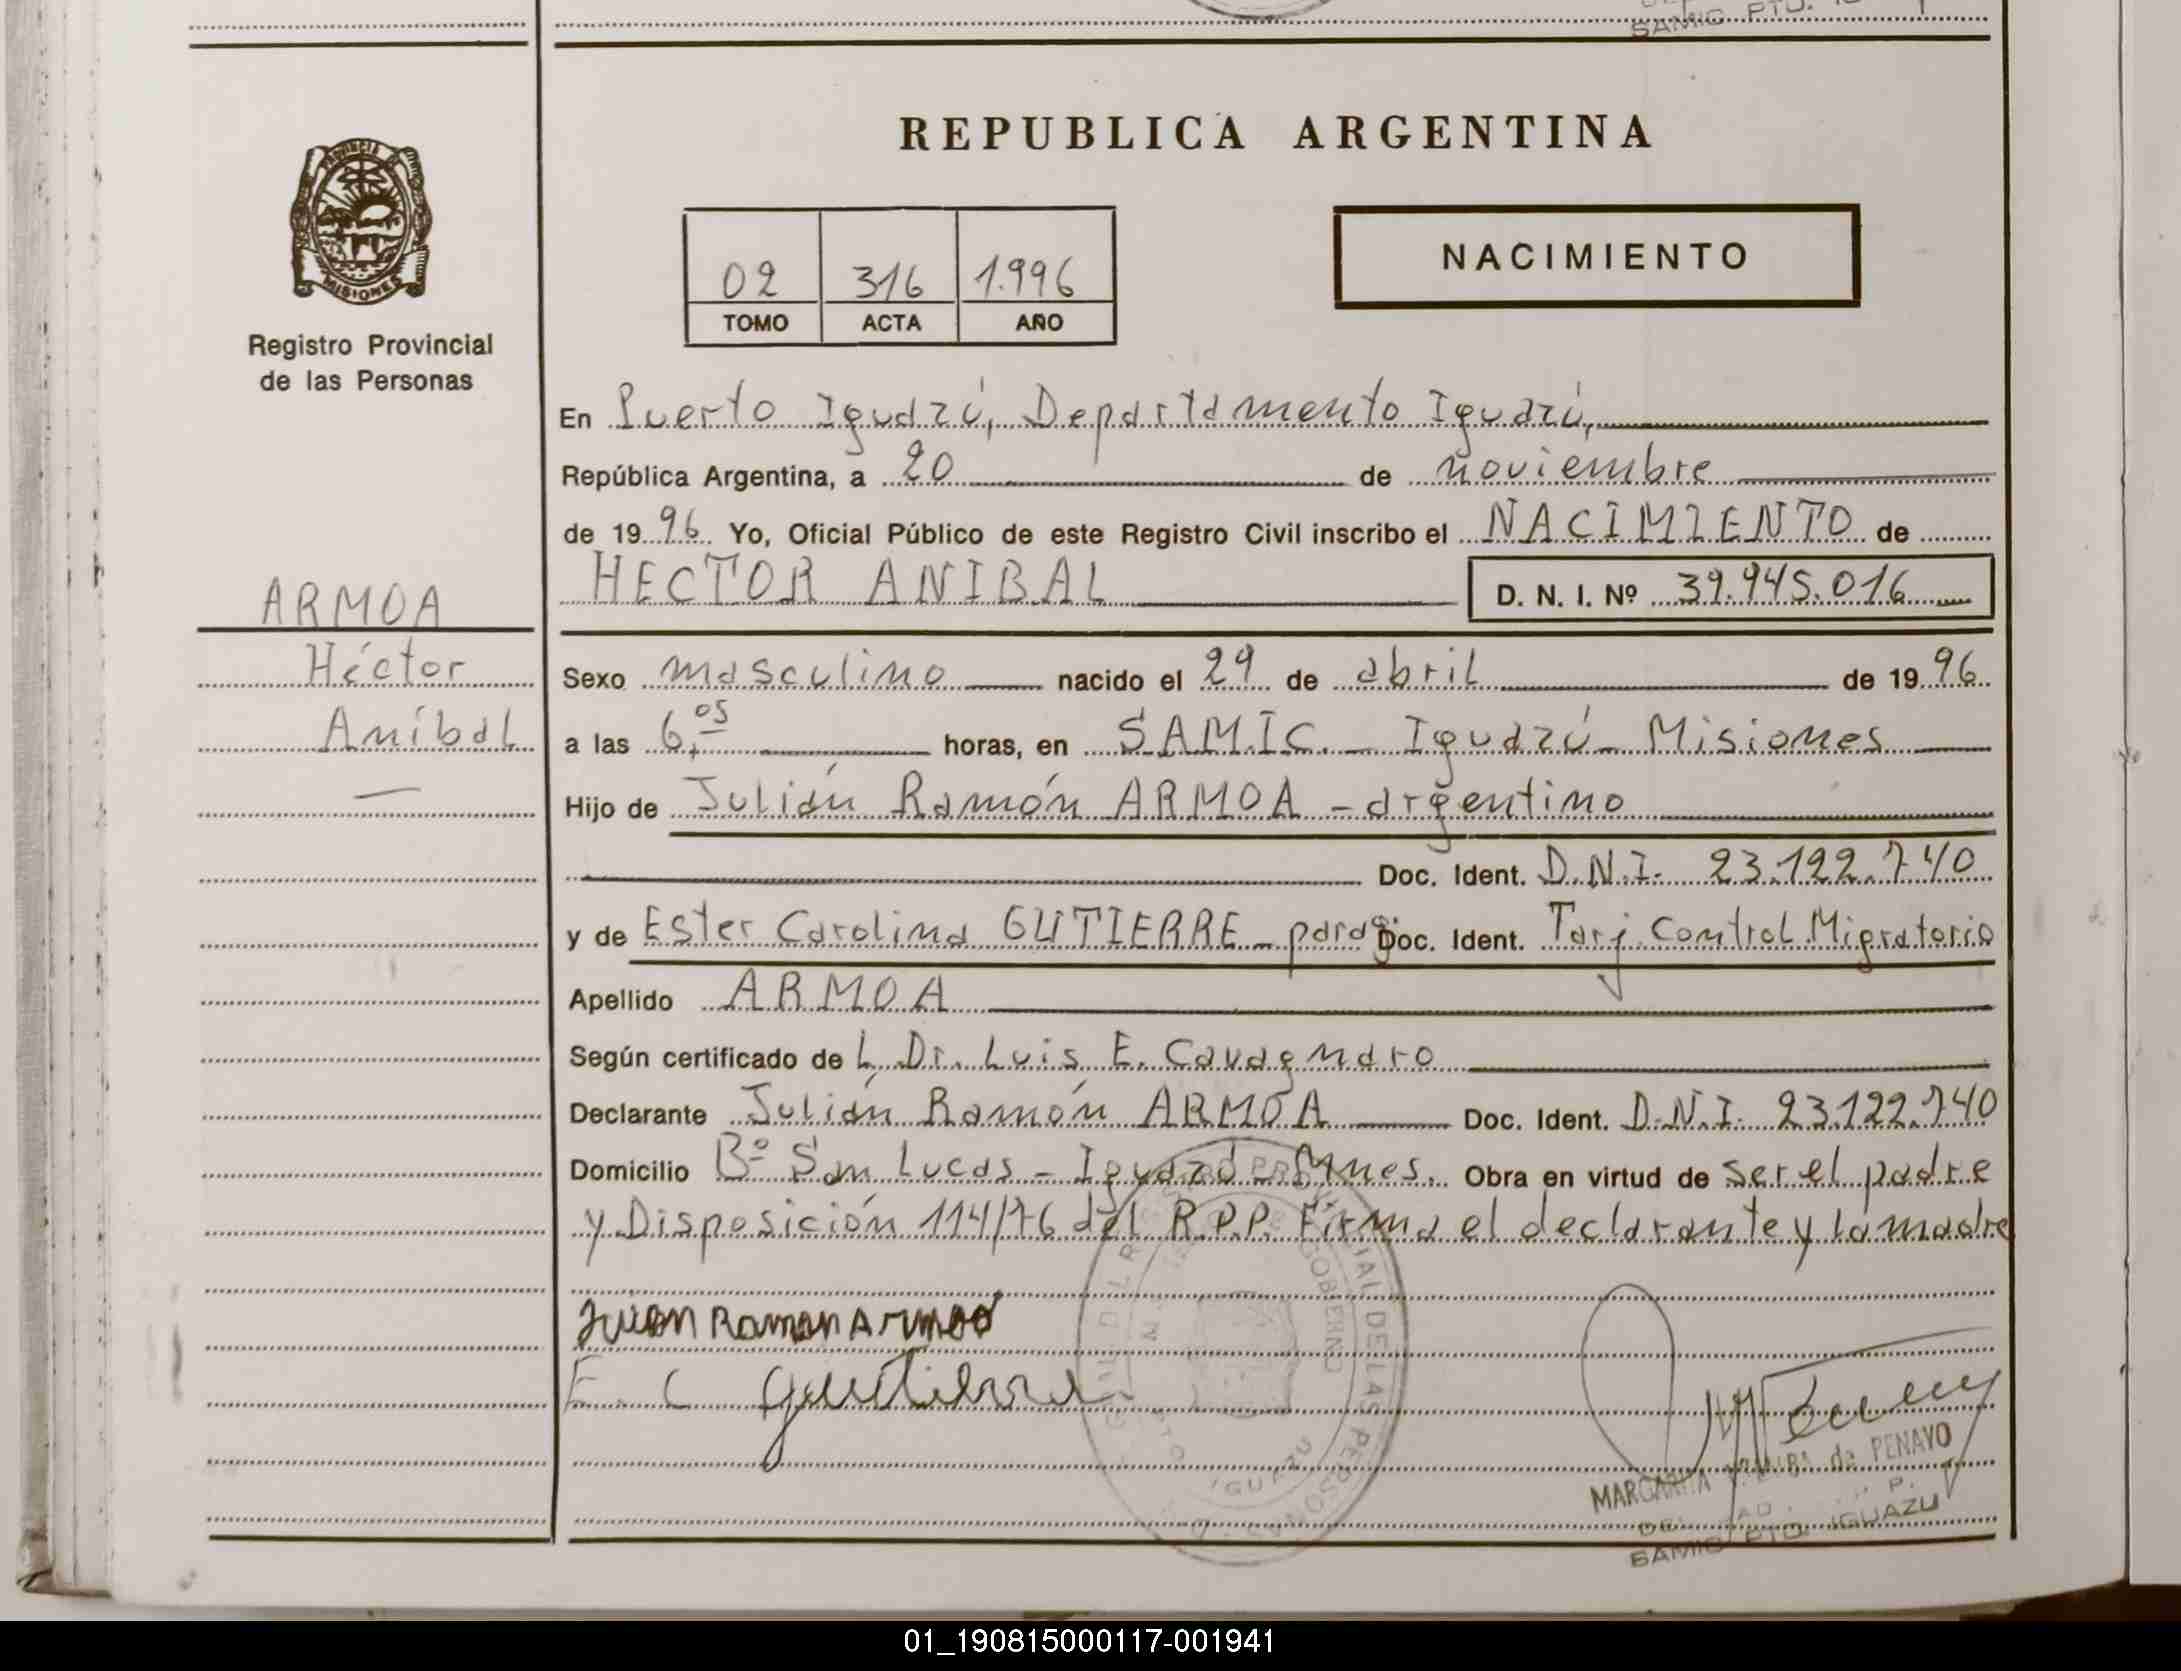 SAMIC PTO.
REPUBLICA ARGENTINA
PROVINCIA DE
MISIONES
Registro Provincial
de las Personas
02 316 1.996
TOMO ACTA AÑO
NACIMIENTO
En Puerto Iguazú, Departamento Iguazú,
República Argentina, a 20 de noviembre
de 19 96 Yo, Oficial Público de este Registro Civil inscribo el NACIMIENTO de
HECTOR ANIBAL D. N. I. Nº 39.945.016
ARMOA
Héctor
Aníbal
Sexo masculino nacido el 29 de abril de 19 96
a las 6,05 horas, en SAMIC - Iguazú - Misiones
Hijo de Julián Ramón ARMOA - argentino
Doc. Ident. D.N.I. 23.122.740
y de Ester Carolina GUTIERRE - parag. Doc. Ident. Tarj. Control Migratorio
Apellido ARMOA
Según certificado de L Dr. Luis E. Cavagnaro
Declarante Julián Ramón ARMOA Doc. Ident. D.N.I. 23.122.740
Domicilio Bº San Lucas - Iguazú - Mnes. Obra en virtud de ser el padre
y Disposición 114/76 del R.P.P. Firma el declarante y la madre
Ramon Armoa
E. C Gutierre
IGUAZU
MARGARITA de PENAYO
SAMIC PTO. IGUAZU
01_190815000117-001941